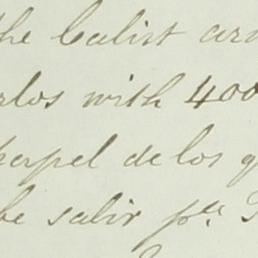 the Calist arm
rlos with 400
perpel de los g
be salir pr.